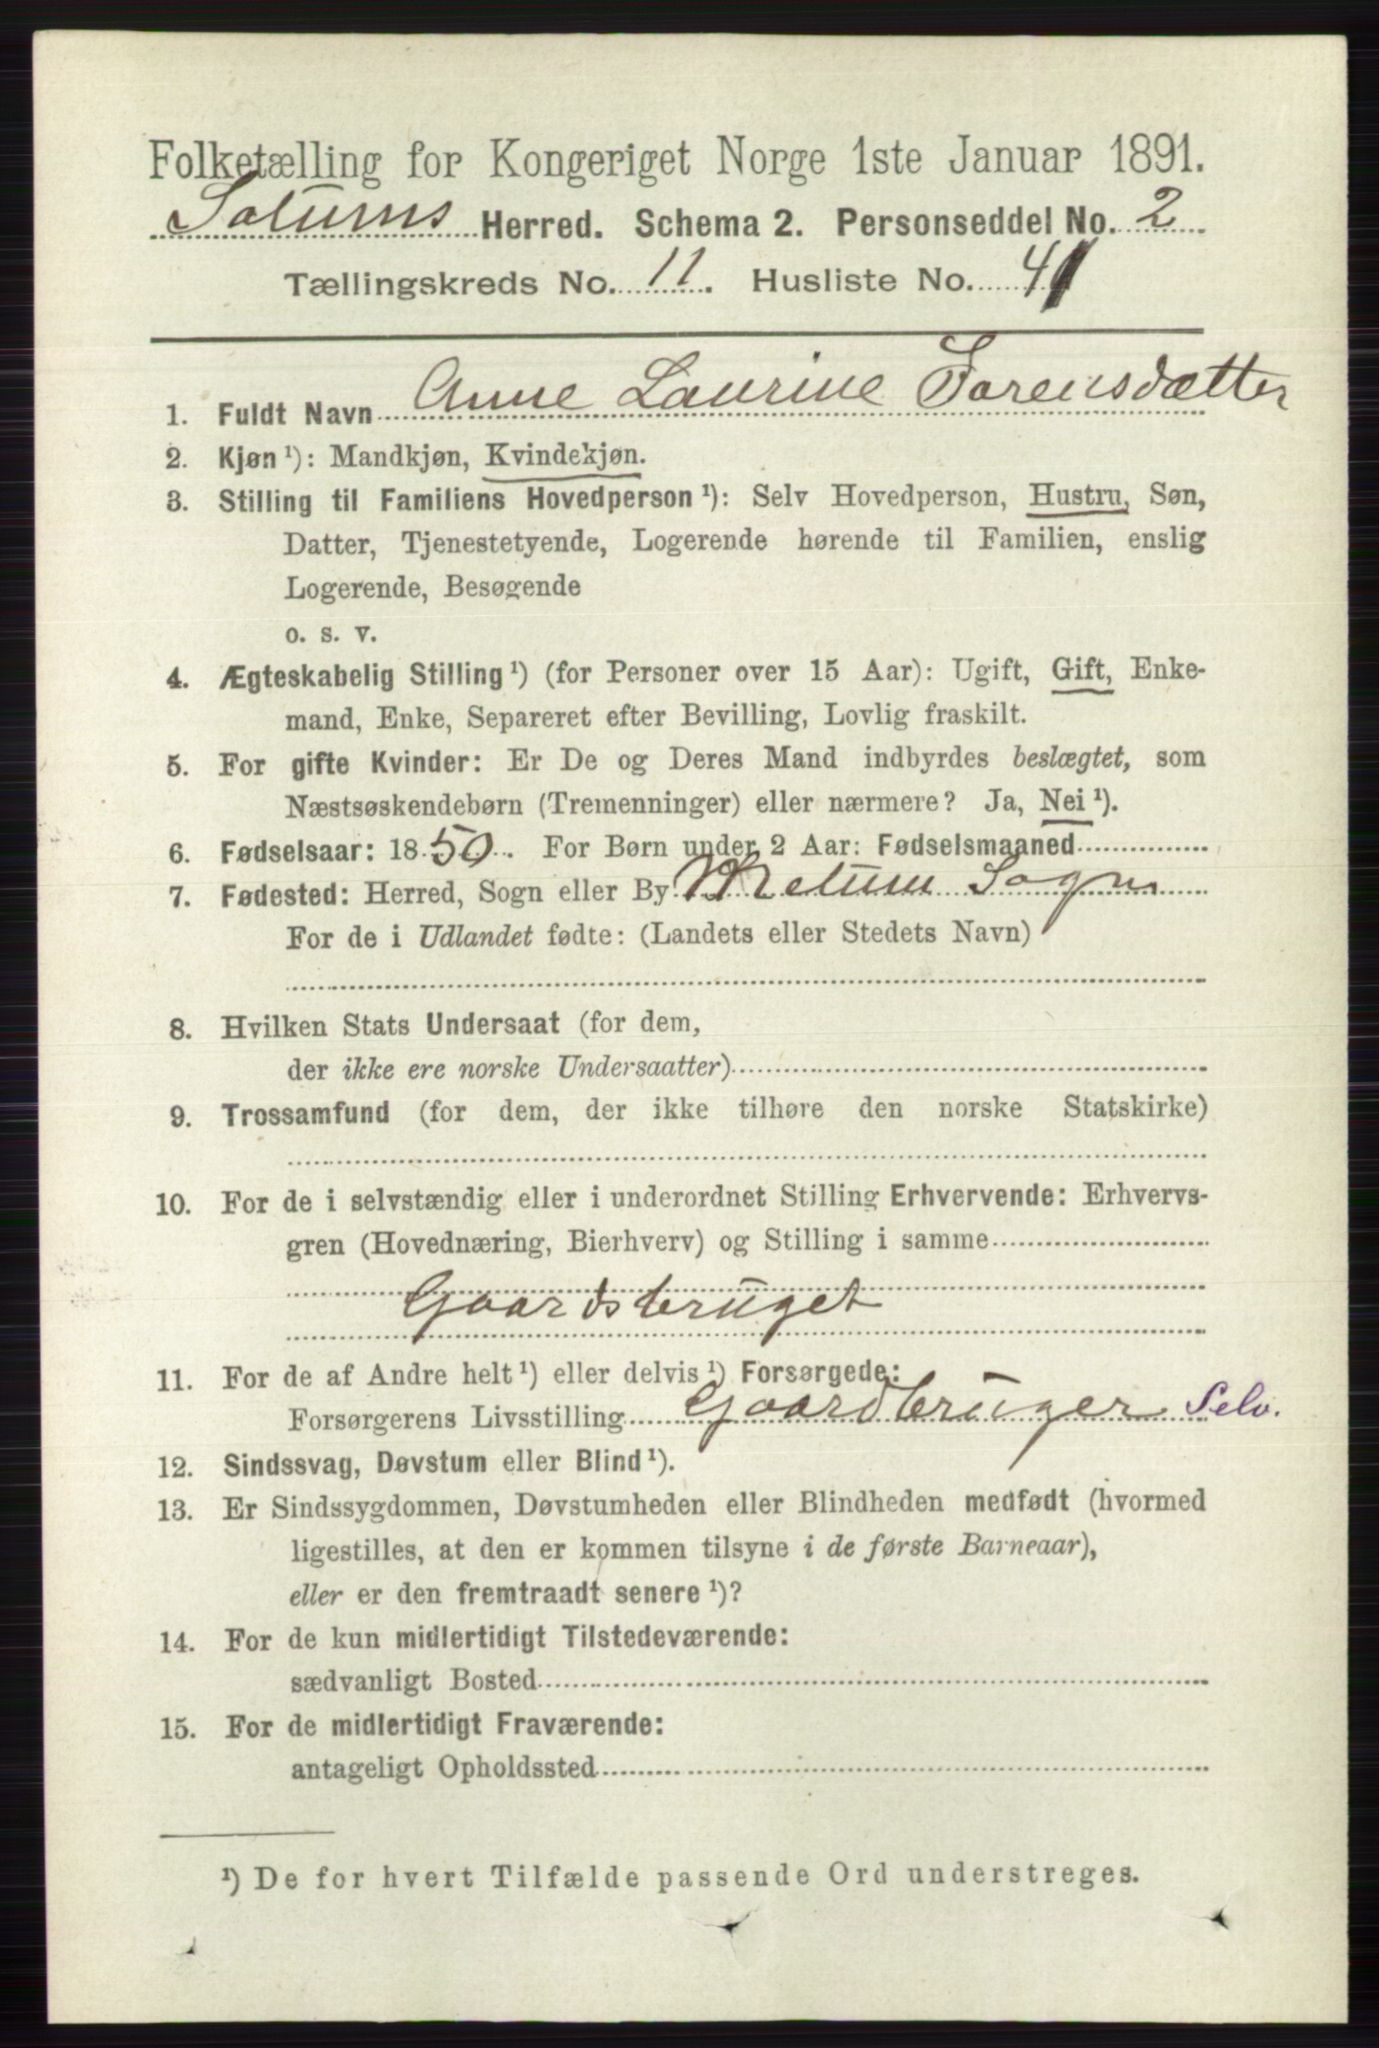 Folketælling for Kongeriget Norge 1ste Januar 1891.
Solums Herred. Schema 2. Personseddel No. 2
Tællingskreds No. 11. Husliste No. 41
1. Fuldt Navn Anne Laurine Torensdætter
2. Kjøn ¹): Mandkjøn, Kvindekjøn.
3. Stilling til Familiens Hovedperson ¹): Selv Hovedperson, Hustru, Søn,
Datter, Tjenestetyende, Logerende hørende til Familien, enslig
Logerende, Besøgende
o. s. v.
4. Ægteskabelig Stilling ¹) (for Personer over 15 Aar): Ugift, Gift, Enke-
mand, Enke, Separeret efter Bevilling, Lovlig fraskilt.
5. For gifte Kvinder: Er De og Deres Mand indbyrdes beslægtet, som
Næstsøskendebørn (Tremenninger) eller nærmere? Ja, Nei ¹).
6. Fødselsaar: 1850. For Børn under 2 Aar: Fødselsmaaned
7. Fødested: Herred, Sogn eller By Melum Sogn
For de i Udlandet fødte: (Landets eller Stedets Navn)
8. Hvilken Stats Undersaat (for dem,
der ikke ere norske Undersaatter)
9. Trossamfund (for dem, der ikke tilhøre den norske Statskirke)
10. For de i selvstændig eller i underordnet Stilling Erhvervende: Erhvervs-
gren (Hovednæring, Bierhverv) og Stilling i samme
Gaardsbruget
11. For de af Andre helt ¹) eller delvis ¹) Forsørgede:
Forsørgerens Livsstilling Gaardbruger Selv.
12. Sindssvag, Døvstum eller Blind ¹).
13. Er Sindssygdommen, Døvstumheden eller Blindheden medfødt (hvormed
ligestilles, at den er kommen tilsyne i de første Barneaar),
eller er den fremtraadt senere ¹)?
14. For de kun midlertidigt Tilstedeværende:
sædvanligt Bosted
15. For de midlertidigt Fraværende:
antageligt Opholdssted
¹) De for hvert Tilfælde passende Ord understreges.